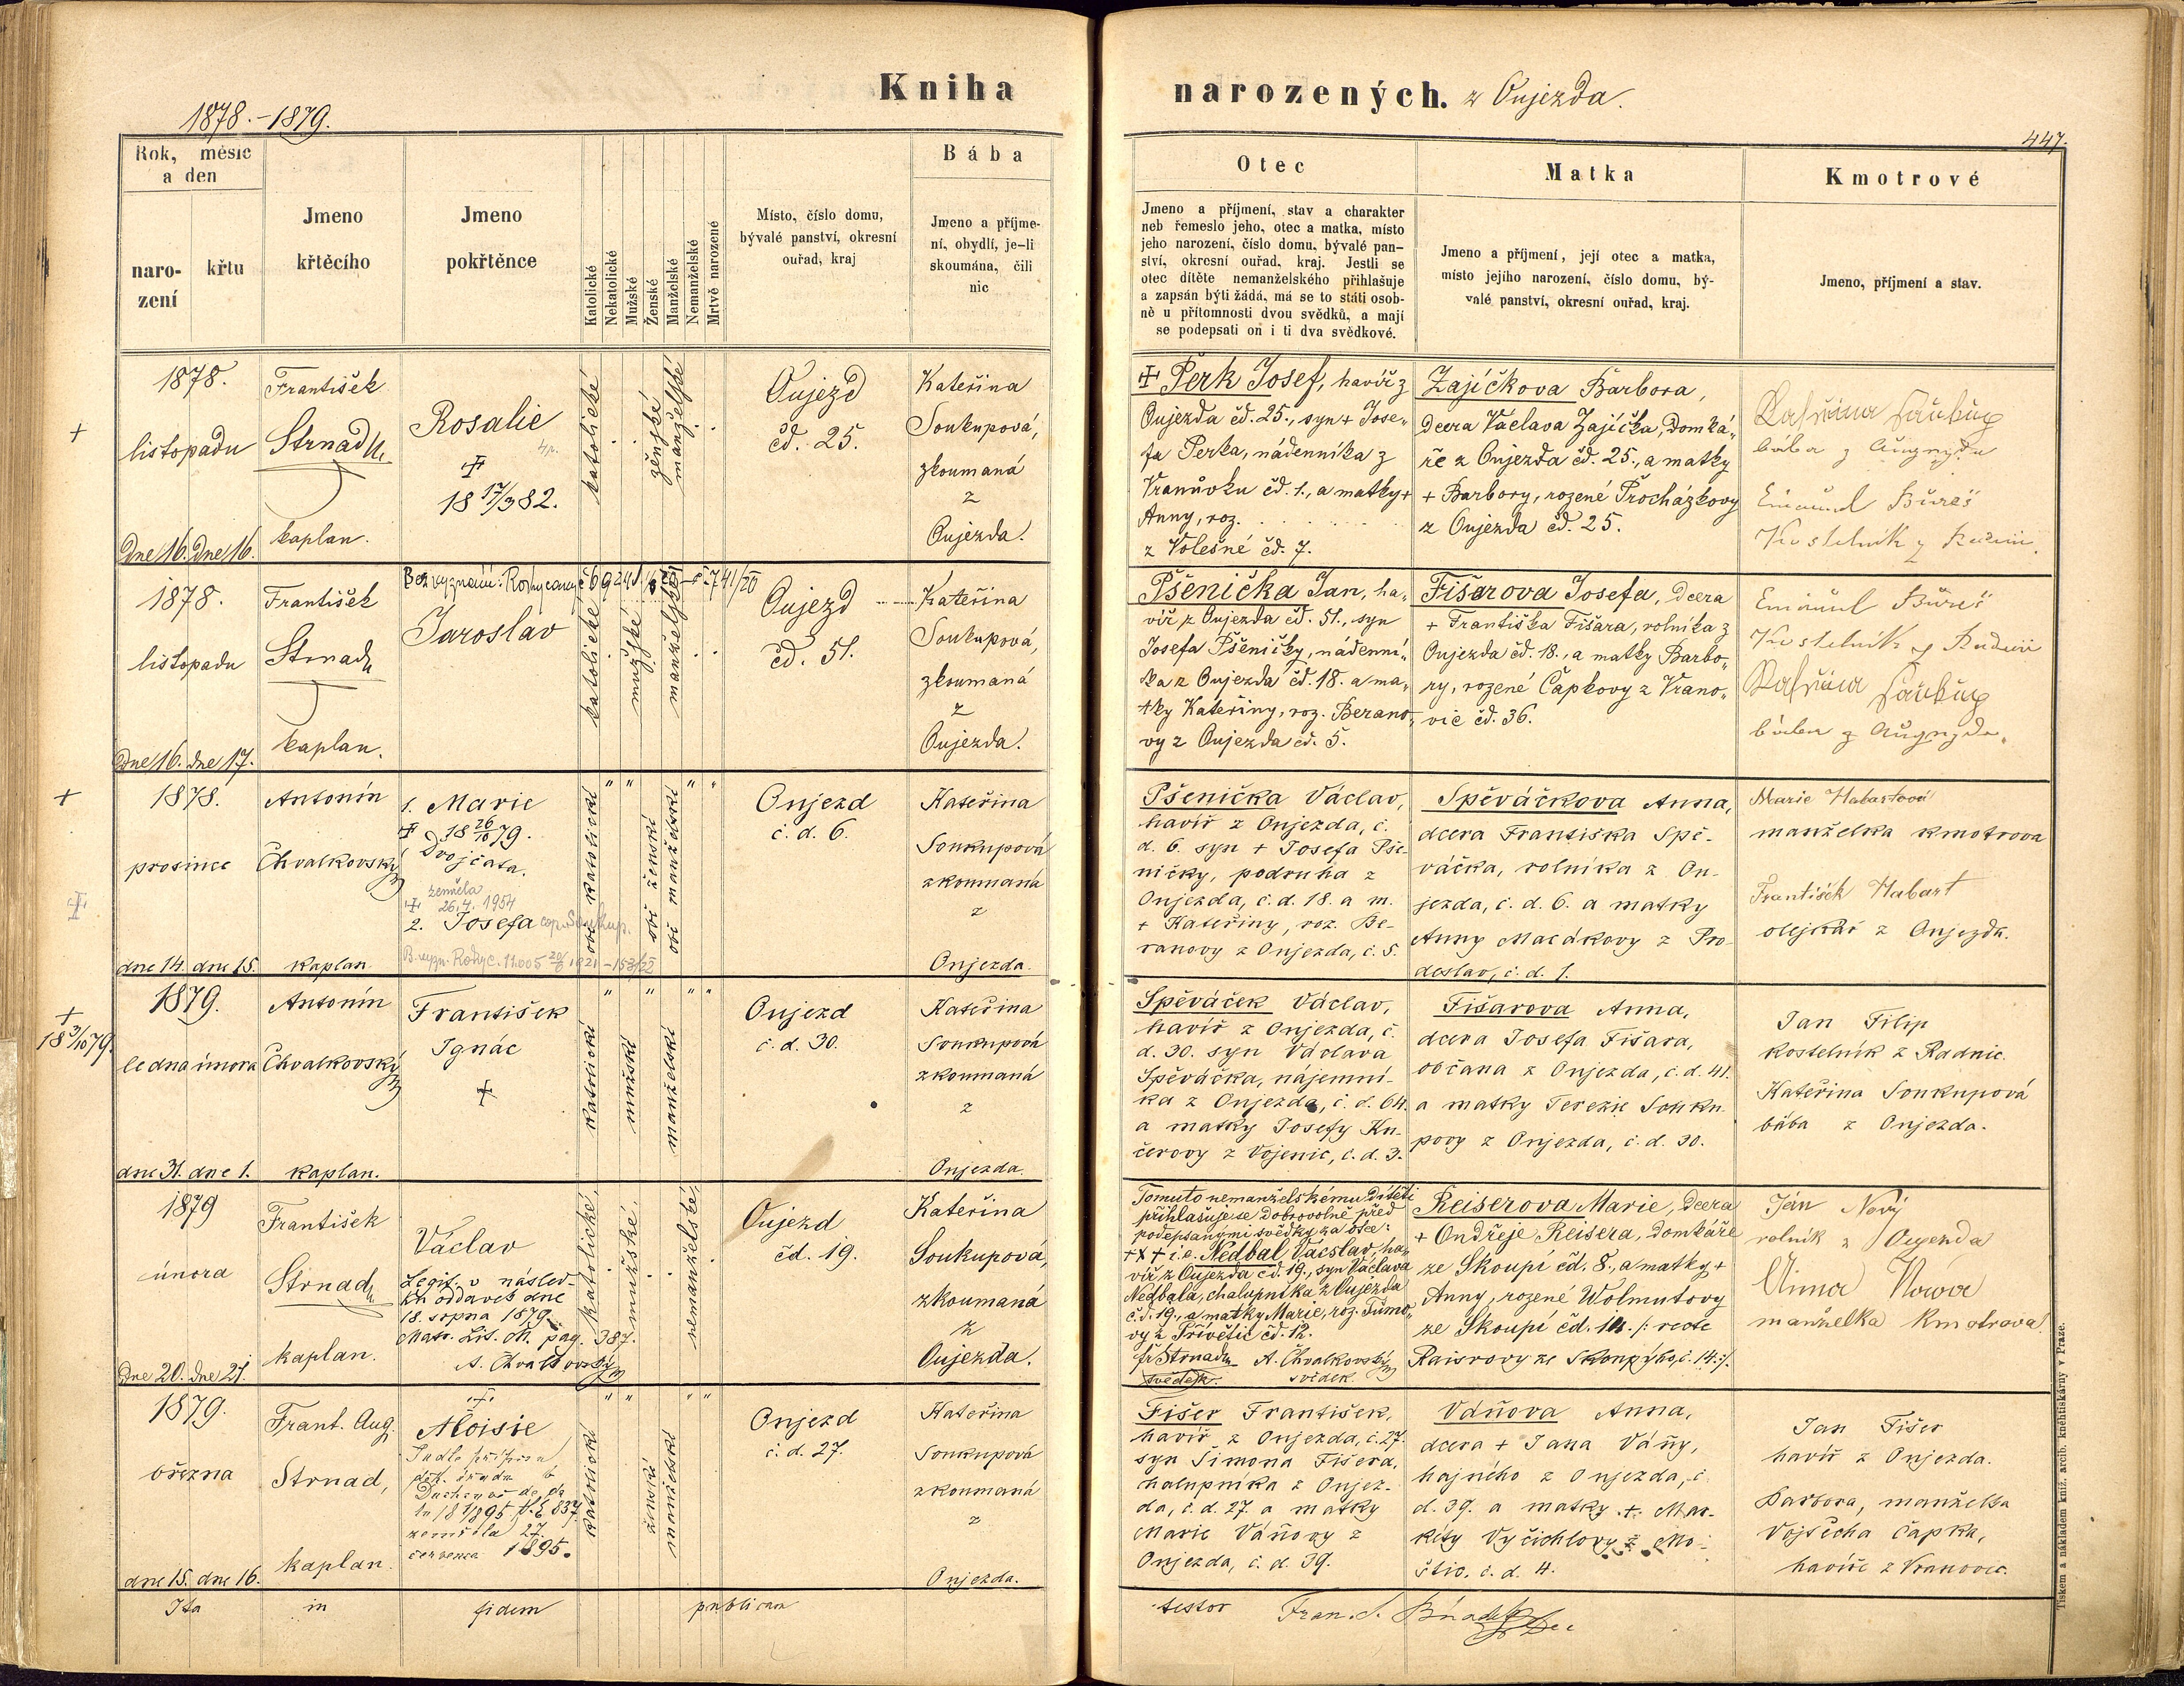 Kniha narozených. z Oujezda.
1878.-1879.
447.
Rok, měsíc
a den
naro-
zení
křtu
Jmeno
křtěcího
Jmeno
pokřtěnce
Katolické
Nekatolické
Mužské
Ženské
Manželské
Nemanželské
Mrtvě narozené
Místo, číslo domu,
bývalé panství, okresní
ouřad, kraj
Bába
Jmeno a příjme-
ní, obydlí, je-li
skoumána, čili
nic
Otec
Jmeno a příjmení, stav a charakter
neb řemeslo jeho, otec a matka, místo
jeho narození, číslo domu, bývalé pan-
ství, okresní ouřad, kraj. Jestli se
otec dítěte nemanželského přihlašuje
a zapsán býti žádá, má se to státi osob-
ně u přítomnosti dvou svědků, a mají
se podepsati on i ti dva svědkové.
Matka
Jmeno a příjmení, její otec a matka,
místo jejího narození, číslo domu, bý-
valé panství, okresní ouřad, kraj.
Kmotrové
Jmeno, příjmení a stav.
+
1878.
listopadu
Dne 16. Dne 16.
František
Strnad
kaplan.
Rosalie
18 17/3 82.
katolické
ženské
manželské
Oujezd
čd. 25.
Kateřina
Soukupová,
zkoumaná
z
Oujezda.
+ Perk Josef, havíř z
Oujezda čd. 25., syn + Jose„
fa Perka, nádenníka z
Vranůvku čd. 1., a matky +
Anny, roz. . . . .
z Volešné čd. 7.
Zajíčkova Barbora,
dcera Václava Zajíčka, domká„
ře z Oujezda čd. 25., a matky
+ Barbory, rozené Procházkovy
z Oujezda čd. 25.
bába z
Bureš
1878.
listopadu
Dne 16. dne 17.
František
Strnad
kaplan.
Bez vyznání: Rokycany
Jaroslav
katolické
mužské
manželské
Oujezd
čd. 51.
Kateřina
Soukupová,
zkoumaná
z
Oujezda.
Pšenička Jan, ha„
víř z Oujezda čd. 51., syn
Josefa Pšeničky, nádenní„
ka z Oujezda čd. 18. a ma„
tky Kateřiny, roz. Berano„
vy z Oujezda čd. 5.
Fišarova Josefa, dcera
+ Františka Fišara, rolníka z
Oujezda čd. 18., a matky Barbo„
ry, rozené Čapkovy z Vrano„
vic čd. 36.
Bureš
+
1878.
prosince
dne 14. dne 15.
Antonín
Chvalkovský
kaplan
1. Marie
+ 18 26/10 79.
Dvojčata.
zemřela
+ 26.4. 1954
2. Josefa cop. Soukup.
obě katolické
obě ženské
obě manželské
Oujezd
č. d. 6.
Kateřina
Soukupová
zkoumaná
z
Oujezda.
Pšenička Václav,
havíř z Oujezda, č.
d. 6. syn + Josefa Pše-
ničky, podruha z
Oujezda, č. d. 18. a m.
+ Kateřiny, roz. Be-
ranovy z Oujezda, č. 5.
Spěváčkova Anna,
dcera Františka Spě-
váčka, rolníka z Ou-
jezda, č. d. 6. a matky
Anny Macákovy z Pro-
deslav, č. d. 1.
Marie Habartová
manželka kmotrova
František Habart
olejkář z Oujezda.
+
18 3/10 79.
1879.
ledna února
dne 31. dne 1.
Antonín
Chvalkovský
kaplan.
František
Ignác
+
katolické
mužské
manželské
Oujezd
č. d. 30.
Kateřina
Soukupová
zkoumaná
z
Oujezda.
Spěváček Václav,
havíř z Oujezda, č.
d. 30. syn Václava
Spěváčka, nájemní-
ka z Oujezda, č. d. 64.
a matky Josefy Ku-
čerovy z Vojenic, č. d. 3.
Fišarova Anna,
dcera Josefa Fišara,
občana z Oujezda, č. d. 41.
a matky Terezie Souku-
povy z Oujezda, č. d. 30.
Jan Filip
kostelník z Radnic.
Kateřina Soukupová
bába z Oujezda.
1879
února
Dne 20. dne 21.
František
Strnad
kaplan.
Václav
Legit. v násled-
ku oddavek dne
18. srpna 1879.
Matr. Lit. M. pag. 387.
A. Chvalkovský
katolické
mužské
nemanželské
Oujezd
čd. 19.
Kateřina
Soukupová,
zkoumaná
z
Oujezda.
Tomuto nemanželskému dítěti
přihlašuje se dobrovolně před
podepsanými svědky za otce:
+ X + i. e. Nedbal Vácslav, ha„
víř z Oujezda čd. 19., syn Václava
Nedbala, chalupníka z Oujezda
č. d. 19., a matky Marie, roz. Tůmo„
vy z Přívětic čd. 12.
Fr Strnad A. Chvalkovský
svědek. svědek.
Reiserova Marie, dcera
+ Ondřeje Reisera, domkáře
ze Skoupí čd. 8., a matky +
Anny, rozené Wolmutovy
ze Skoupí čd. 14. /: recte
Raisrovy ze Skoupýho, č. 14 :/.
Ján Nový
rolník z Oujezda
Anna Nowá
manželka kmotrova
1879.
března
dne 15. dne 16.
Frant. Aug.
Strnad,
kaplan
+
Aloisie
zemřela 27.
července 1895.
katolické
ženské
manželské
Oujezd
č. d. 27.
Kateřina
Soukupová
zkoumaná
z
Oujezda.
Fišer František,
havíř z Oujezda, č. 27.
syn Šimona Fišera,
chalupníka z Oujez-
da, č. d. 27. a matky
Marie Váňovy z
Oujezda, č. d. 39.
Váňova Anna,
dcera + Jana Váňy,
hajného z Oujezda, č.
d. 39. a matky + Mar-
kéty Vyčichlovy z Mo-
štic, č. d. 4.
Jan Fišer
havíř z Oujezda.
Barbora, manželka
Vojtěcha Čapka,
havíře z Vranovic.
Ita in fidem publicam
testor Fran. S.
Tiskem a nákladem kníž. arcib. knihtiskárny v Praze.